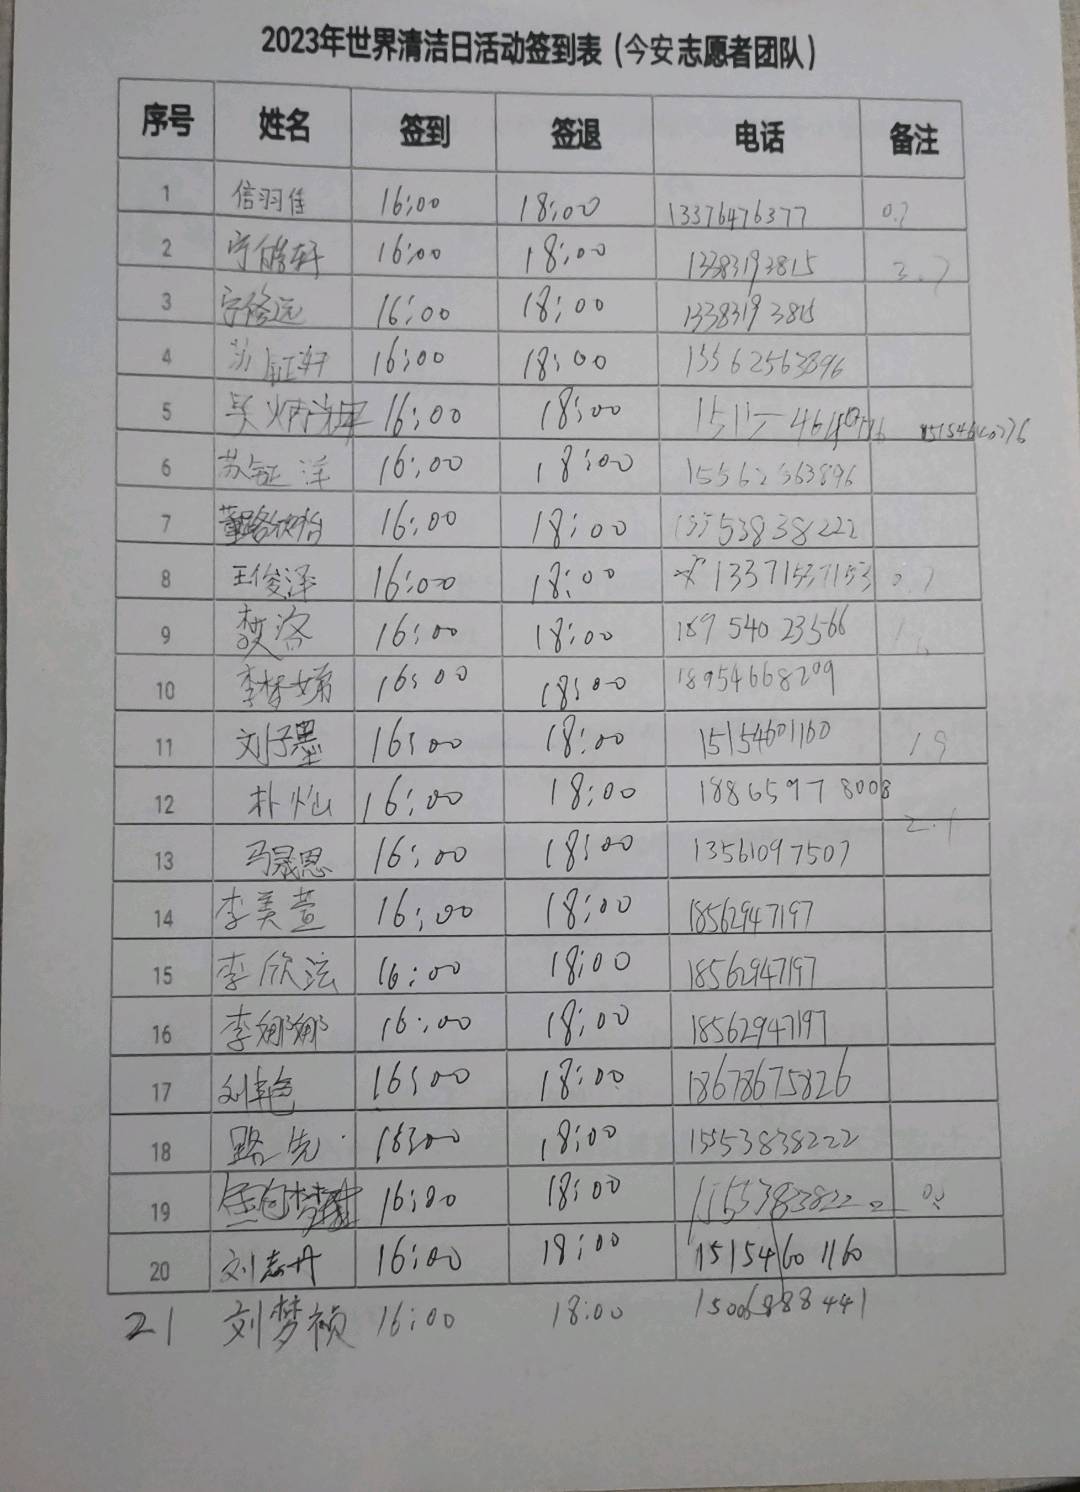 2023年世界清洁日活动签到表（今安志愿者团队）
序号 姓名 签到 签退 电话 备注
1 信羽佳 16:00 18:00 13376476377 0.7
2 宁修轩 16:00 18:00 13383193815 3.7
3 宁修远 16:00 18:00 13383193815
4 苏钲轩 16:00 18:00 15562563896
5 16:00 18:00 15154640776
6 苏钲洋 16:00 18:00 15562563896
7 董路欣怡 16:00 18:00 15553838222
8 王俊泽 16:00 18:00 13371537153 0.7
9 洛 16:00 18:00 189 540 23566
10 李梦娣 16:00 18:00 18954668209
11 刘子墨 16:00 18:00 15154601160 1.9
12 朴灿 16:00 18:00 18865978008 2.1
13 马晟恩 16:00 18:00 13561097507
14 李美萱 16:00 18:00 18562947197
15 李欣泫 16:00 18:00 18562947197
16 李娜娜 16:00 18:00 18562947197
17 刘艳 16:00 18:00 18678675826
18 路先 16:00 18:00 15553838222
19 16:00 18:00 15553838222
20 刘志丹 16:00 18:00 15154601160
21 刘梦祯 16:00 18:00 15006888441